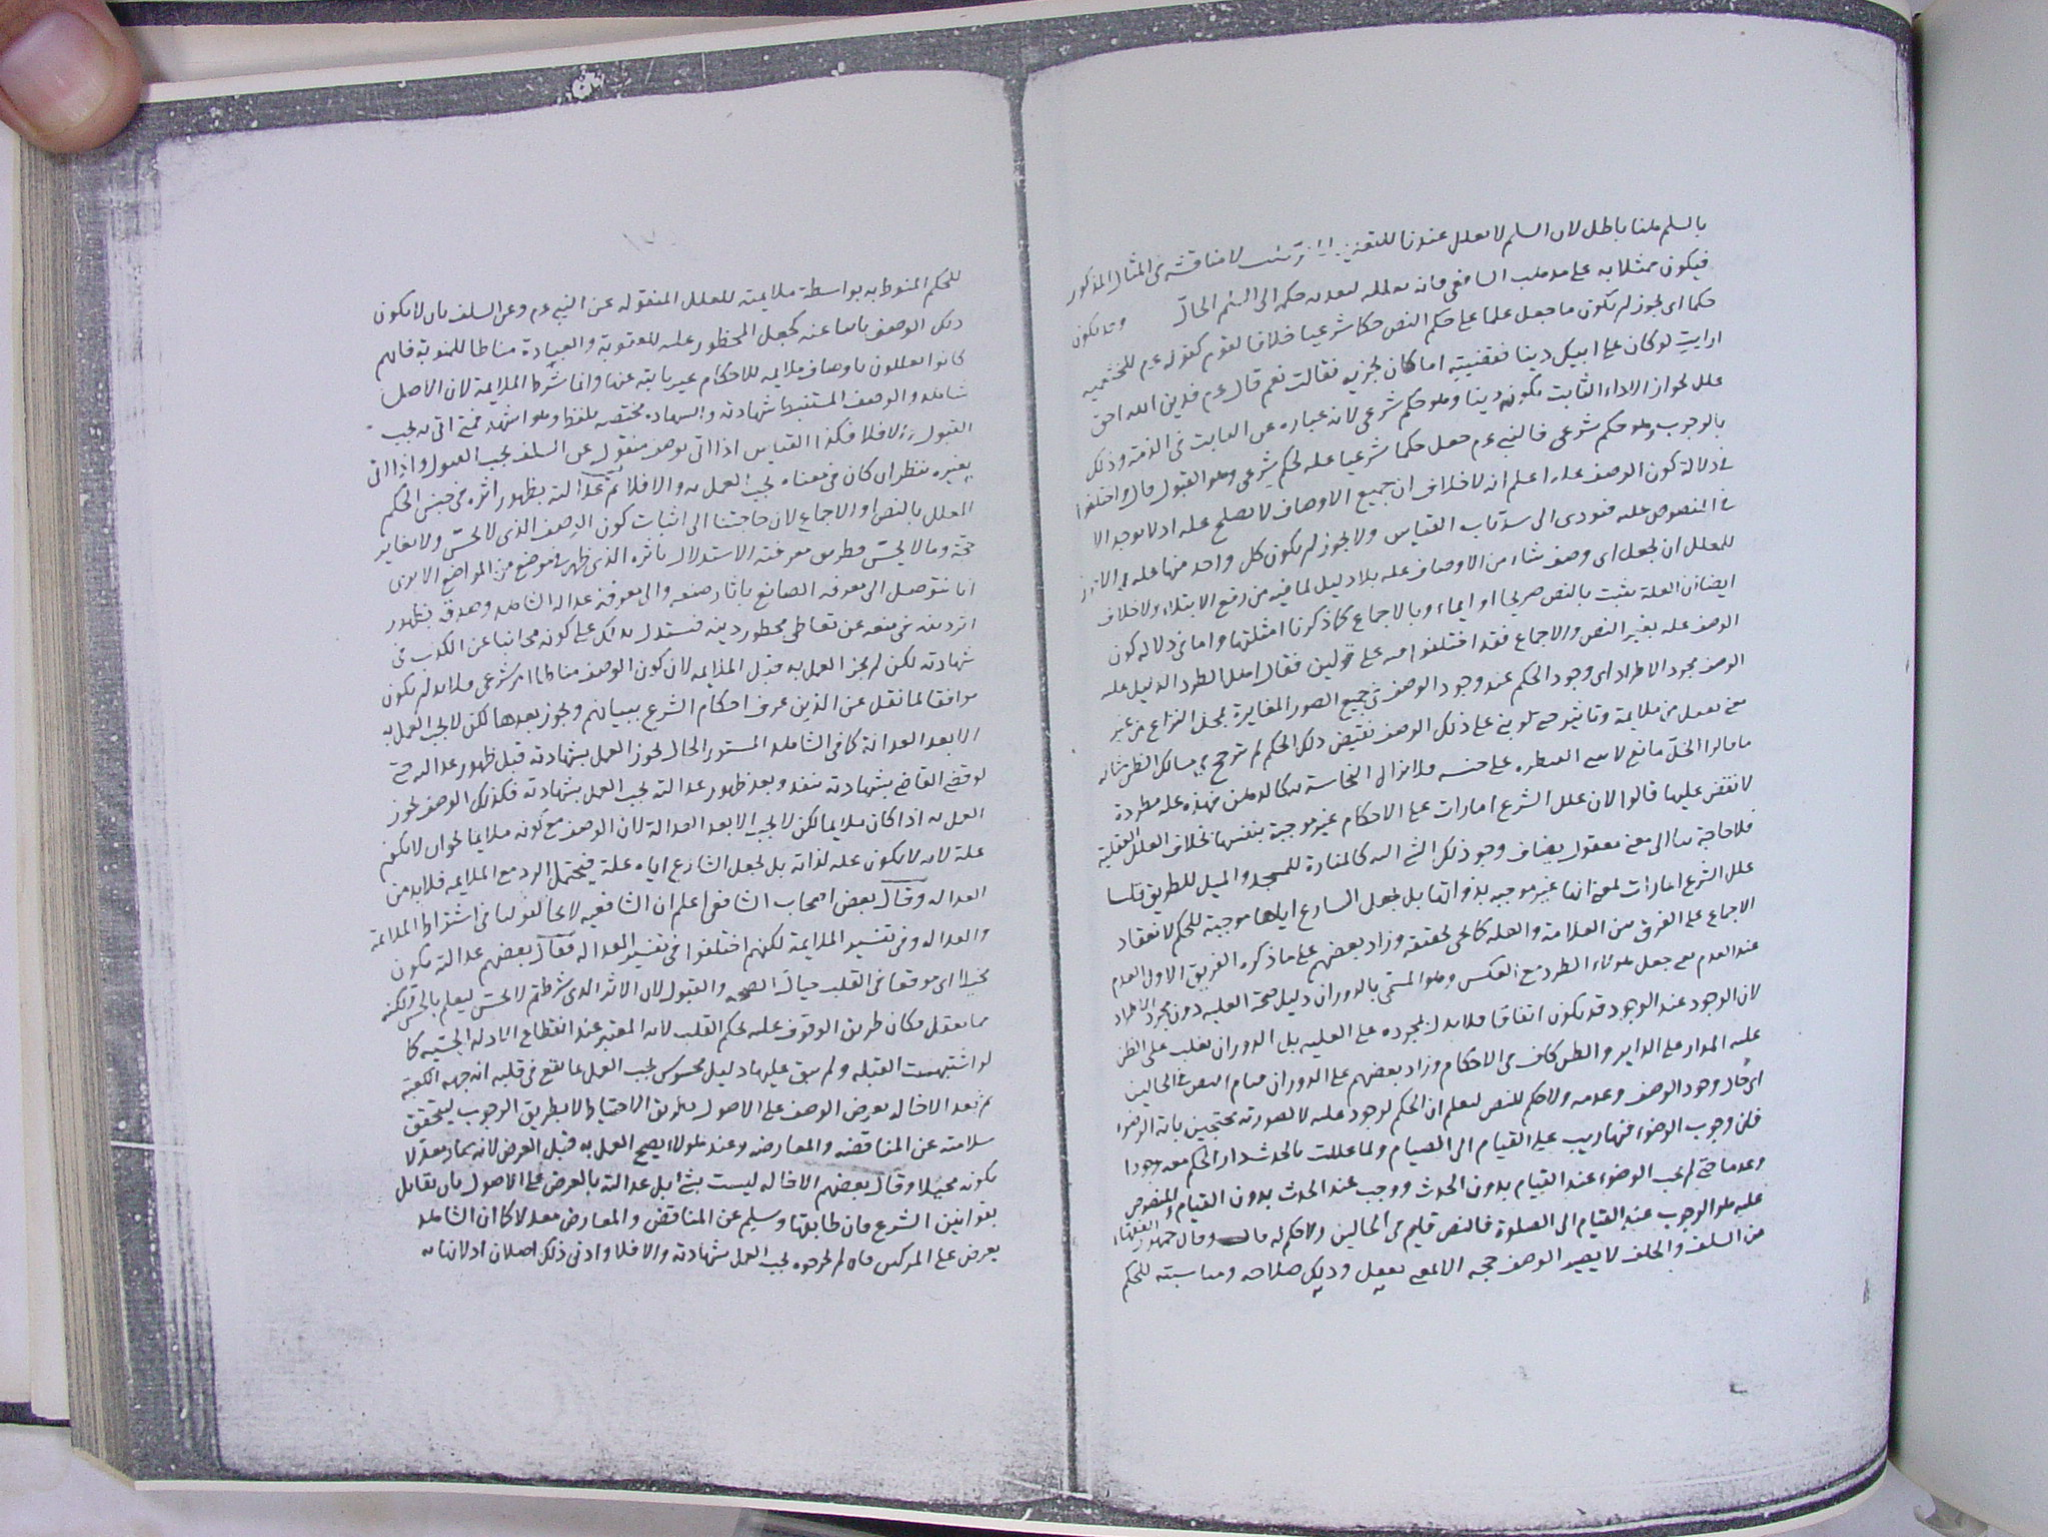 بالسلم ملنا باطل لان السلم لا يعلل عندنا للتعدية لا مناقشة فى المثال المذكور
فيكون ممثلا به على مذهب الشافعى فانه يعلله لتعدية حكمه الى السلم الحال وقد يكون
حكما اى يجوز ان يكون ما جعل علما على حكم النص حكما شرعيا خلافا لقوم كقوله عم للخثعمية
ارايت لو كان على ابيك دينا فقضيتيه اما كان يجزيه فقالت نعم قال عم فدين الله احق
علل لجواز الاداء الثابت بكونه دينا وهو حكم شرعى لانه عبارة عن الثابت فى الذمة وذلك
بالوجوب وهو حكم شرعى فالنبى عم جعل حكما شرعيا علة لحكم شرعى وهو القبول قال واختلفوا
فى دلالة كون الوصف علة اعلم انه لا خلاف ان جميع الاوصاف لا يصلح علة اذ لا يوجد الا
فى المنصوص عليه فيودى الى سد باب القياس ولا يجوز ان يكون كل واحد منها علة
للمعلل ان يجعل اى وصف شاء من الاوصاف علة بلا دليل لما فيه من رفع الابتلاء ولا خلاف
ايضا ان العلة يثبت بالنص صريحا او ايماء وبالاجماع كما ذكرنا امثلتها واما فى دلالة كون
الوصف علة بغير النص والاجماع فقد اختلفوا فيه على قولين فقال اهل الطرد الدليل علة
الوصف مجرد الاطراد اى وجود الحكم عند وجود الوصف فى جميع الصور المغايرة لمحل النزاع من غير
معنى يعقل من ملايمة وتاثير حتى لو بنى على ذلك الوصف نقيض ذلك الحكم لم يترجح فى مسالك الظن مثاله
ما قالوا الخل مايع لا يبنى القنطرة على جنسه فلا يزال النجاسة به كالدهن فهذه علة مطردة
لا نقض عليها قالوا لان علل الشرع امارات على الاحكام غير موجبة بنفسها بخلاف العلل العقلية
فلا حاجة بنا الى معنى معقول يضاف وجوذلك الشئ اليه كالمنارة للمسجد والميل للطريق قلنا
علل الشرع امارات لمعنى انها غير موجبه بذواتها بل بجعل الشارع اياها موجبة للحكم لانعقاد
الاجماع على الفرق بين العلامة والعلة كما يجى تحقيقه وزاد بعضهم على ما ذكره الفريق الاول العدم
عند العدم يعنى جعل هولاء الطرد مع العكس وهو المسمى بالدوران دليل صحة العلية دون مجرد الاطراد
لان الوجود عند الوجود قد يكون اتفاقا فلا يدل بمجرده على العلية بل الدوران يغلب على الظن
علية المدار على الداير والظن كاف فى الاحكام وزاد بعضهم على الدوران قيام النص فى الحالين
اى حال وجود الوصف وعدمه ولا حكم للنص ليعلم ان الحكم لوجود علته لا لصورته محتجين باية الوضوء
فان وجوب الوضوء فيها رتب على القيام الى الصيام ولما عللت بالحدث دار الحكم معه وجودا
وعدما حتى لم يجب الوضوء عند القيام بدون الحدث ووجب عند الحدث بدون القيام والمنصوص
عليه هو الوجوب عند القيام الى الصلوة فالنص قايم فى الحالين ولا حكم له قال وقال جمهور الفقهاء
من السلف والخلف لا يصير الوصف حجه الا لمعنى يعقل ودليل صلاحه ومناسبته للحكم
للحكم المنوط به بواسطة ملايمته للعلل المنقوله عن النبى عم وعن السلف بان لا يكون
ذلك الوصف نابيا عنه كجعل المحظور علة للعقوبة والعبادة مناطا للمثوبة فانهم
كانوا يعللون باوصاف ملايمه للاحكام غير نابية عنها وانما شرط الملايمة لان الاصل
شاهد والوصف المستنبط شهادته والشهادة مختصة بلفظ وهو اشهد فمتى اتى به يجب
القبول والا فلا فكذا القياس اذا اتى بوصف منقول عن السلف يجب القبول واذا اتى
بغيره ننظر ان كان فى معناه يجب العمل به والا فلا ثم عدالته بظهور اثره فى جنس الحكم
المعلل بالنص او الاجماع لان حاجتنا الى اثبات كون الوصف الذى لا يحس ولا يعاين
حجة وما لا يحس فطريق معرفته الاستدلال باثره الذى ظهر فى موضع من المواضع الا يرى
انا نتوصل الى معرفة الصانع باثار صنعه والى معرفة عدالة الشاهد وصدقه بظهور
اثر دينه فى منعه عن تعاطى محظور دينه فنستدل بذلك على كونه مجانبا عن الكذب فى
شهادته لكن لم يجز العمل به قبل الملايمه لان كون الوصف مناطا امر شرعى فلا بد ان يكون
موافقا لما نقل عن الذين عرف احكام الشرع ببيانهم ويجوز بعدها لكن لا يجب العمل به
الا بعد العدالة كما فى الشاهد المستور الحال يجوز العمل بشهادته قبل ظهور عدالته حتى
لو قضى القاضى بشهادته نفذ وبعد ظهور عدالته يجب العمل بشهادته فكذلك الوصف يجوز
العمل به اذا كان ملايما لكن لا يجب الا بعد العدالة لان الوصف مع كونه ملايما يجوز ان لا يكون
علة لانه لا يكون علة لذاته بل بجعل الشارع اياه علة فيحتمل الرد مع الملايمه فلا بد من
العدالة وقال بعض اصحاب الشافعى اعلم ان الشافعيه لا يخالفوننا فى اشتراط الملايمة
والعدالة وفى تفسير الملايمة لكنهم اختلفوا فى تفسير العدالة فقال بعضهم عدالته بكون
مخيلا اى موقعا فى القلب خيال الصحه والقبول لان الاثر الذى شرطتم لا يحس ليعلم بالحس ولكنه
مما يعقل فكان طريق الوقوف عليه تحكم القلب لانه المعتبر عند انقطاع الادلة الحسيه كما
لو اشتبهت القبله ولم يبق عليها دليل محسوس يجب العمل بما يقع فى قلبه انه جهة الكعبة
ثم بعد الاخاله يعرض الوصف على الاصول بطريق الاحتياط لا بطريق الوجوب ليتحقق
سلامته عن المناقضه والمعارضه وعند هولاء يصح العمل به قبل العرض لانه صار معدلا
بكونه مخيلا وقال بعضهم الاخاله ليست بشئ بل عدالته بالعرض على الاصول بان يقابل
بقوانين الشرع فان طابقها وسليم عن المناقض والمعارض معدلا كما ان الشاهد
يعرض على المزكين فان لم يجرحوه يجب العمل بشهادته والا فلا وادنى ذلك اصلان اذ لا نهايه